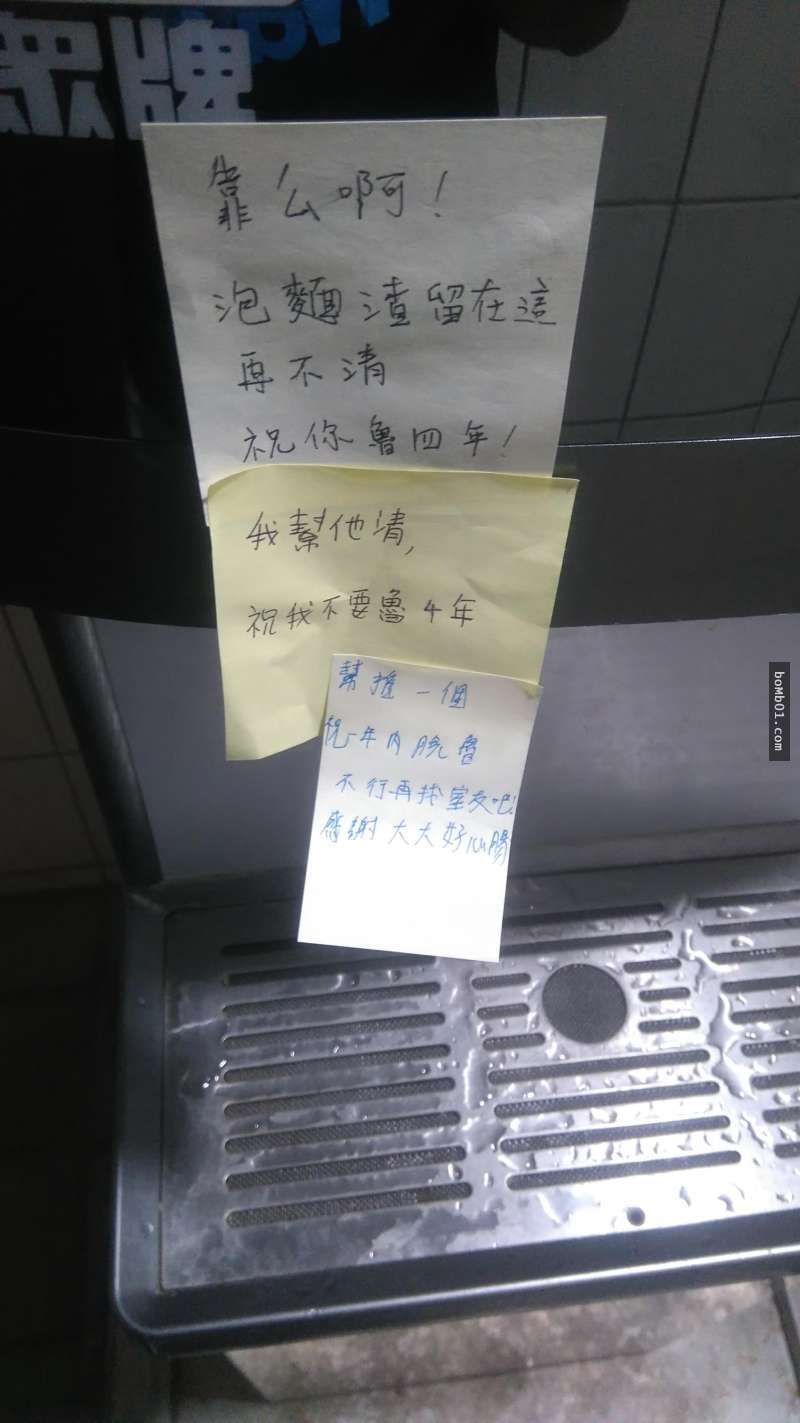 眾牌
靠么啊！
泡麵渣留在這
再不清
祝你魯四年！
我幫他清，
祝我不要魯4年
幫推一個
祝一年內脫魯
不行再找室友吧！
感謝大大好心腸
boMb01.com